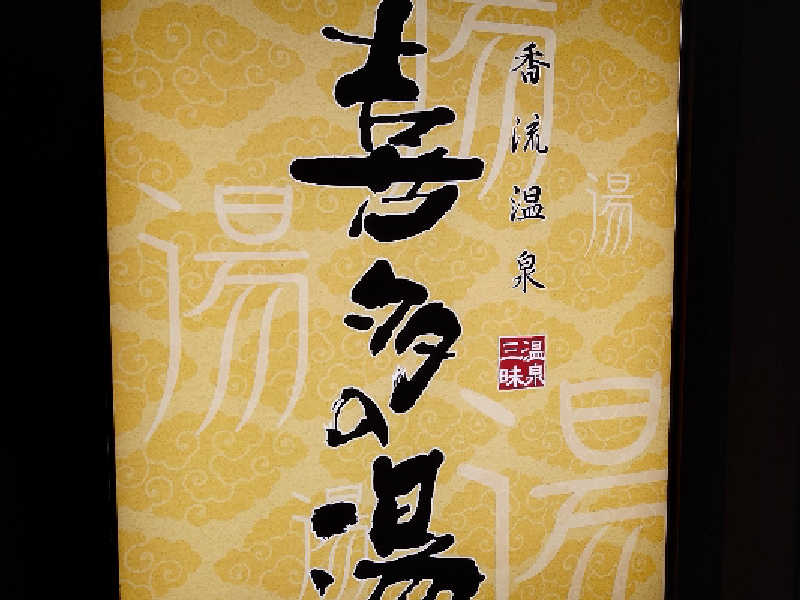 香流温泉
喜多の湯
温泉三昧
湯
湯
湯
湯
湯